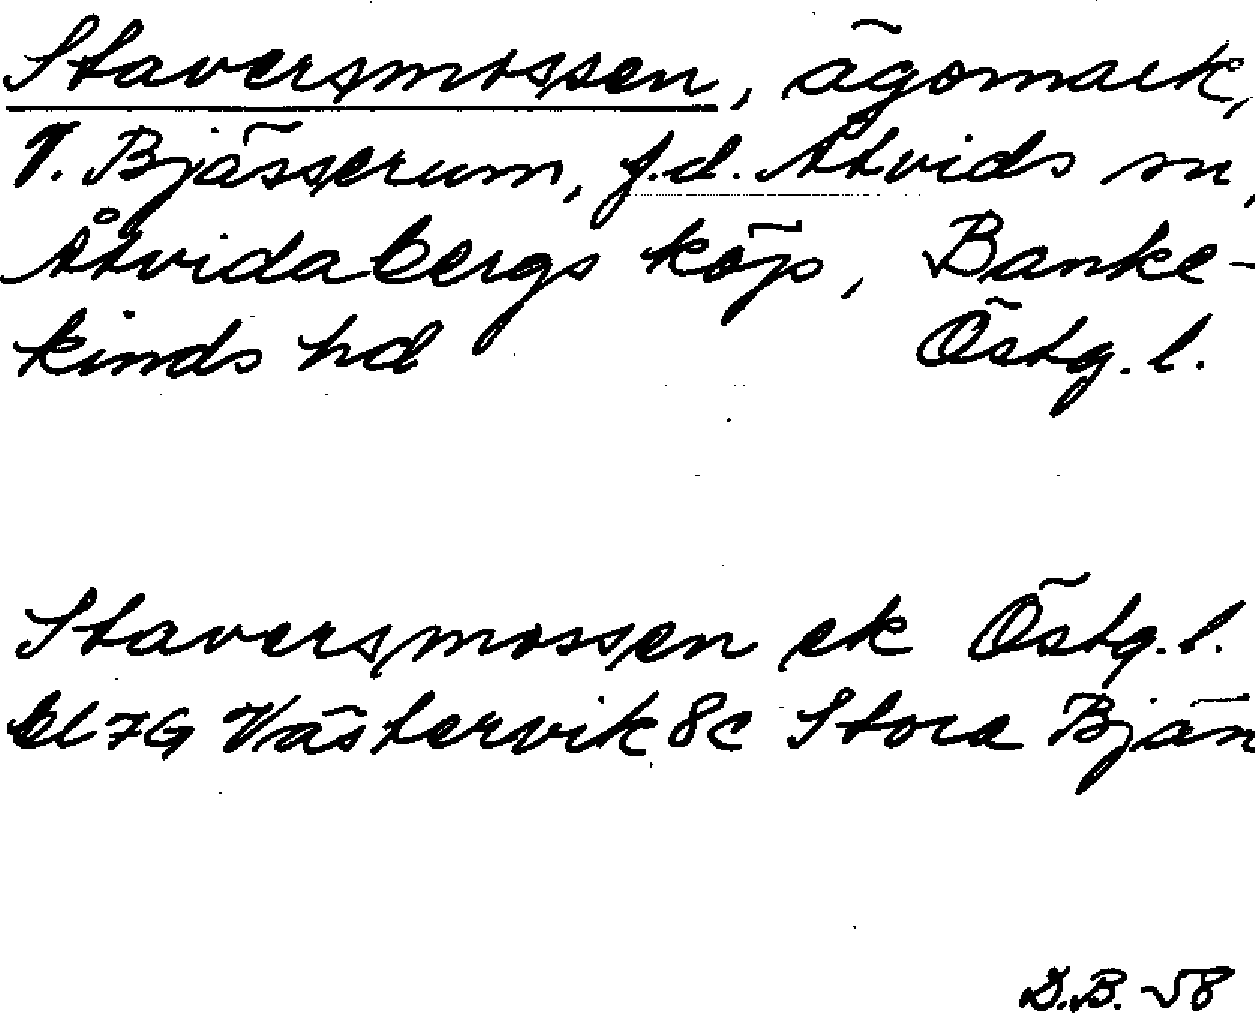 Staversmossen, ägomark,
V. Bjässerum, f.d. Åtvids sn,
Åtvidabergs köp, Banke-
kinds hd Östg. l.
Staversmossen ek Östg. l.
bl 7G Västervik 8c Stora Bjän
D.B. -58